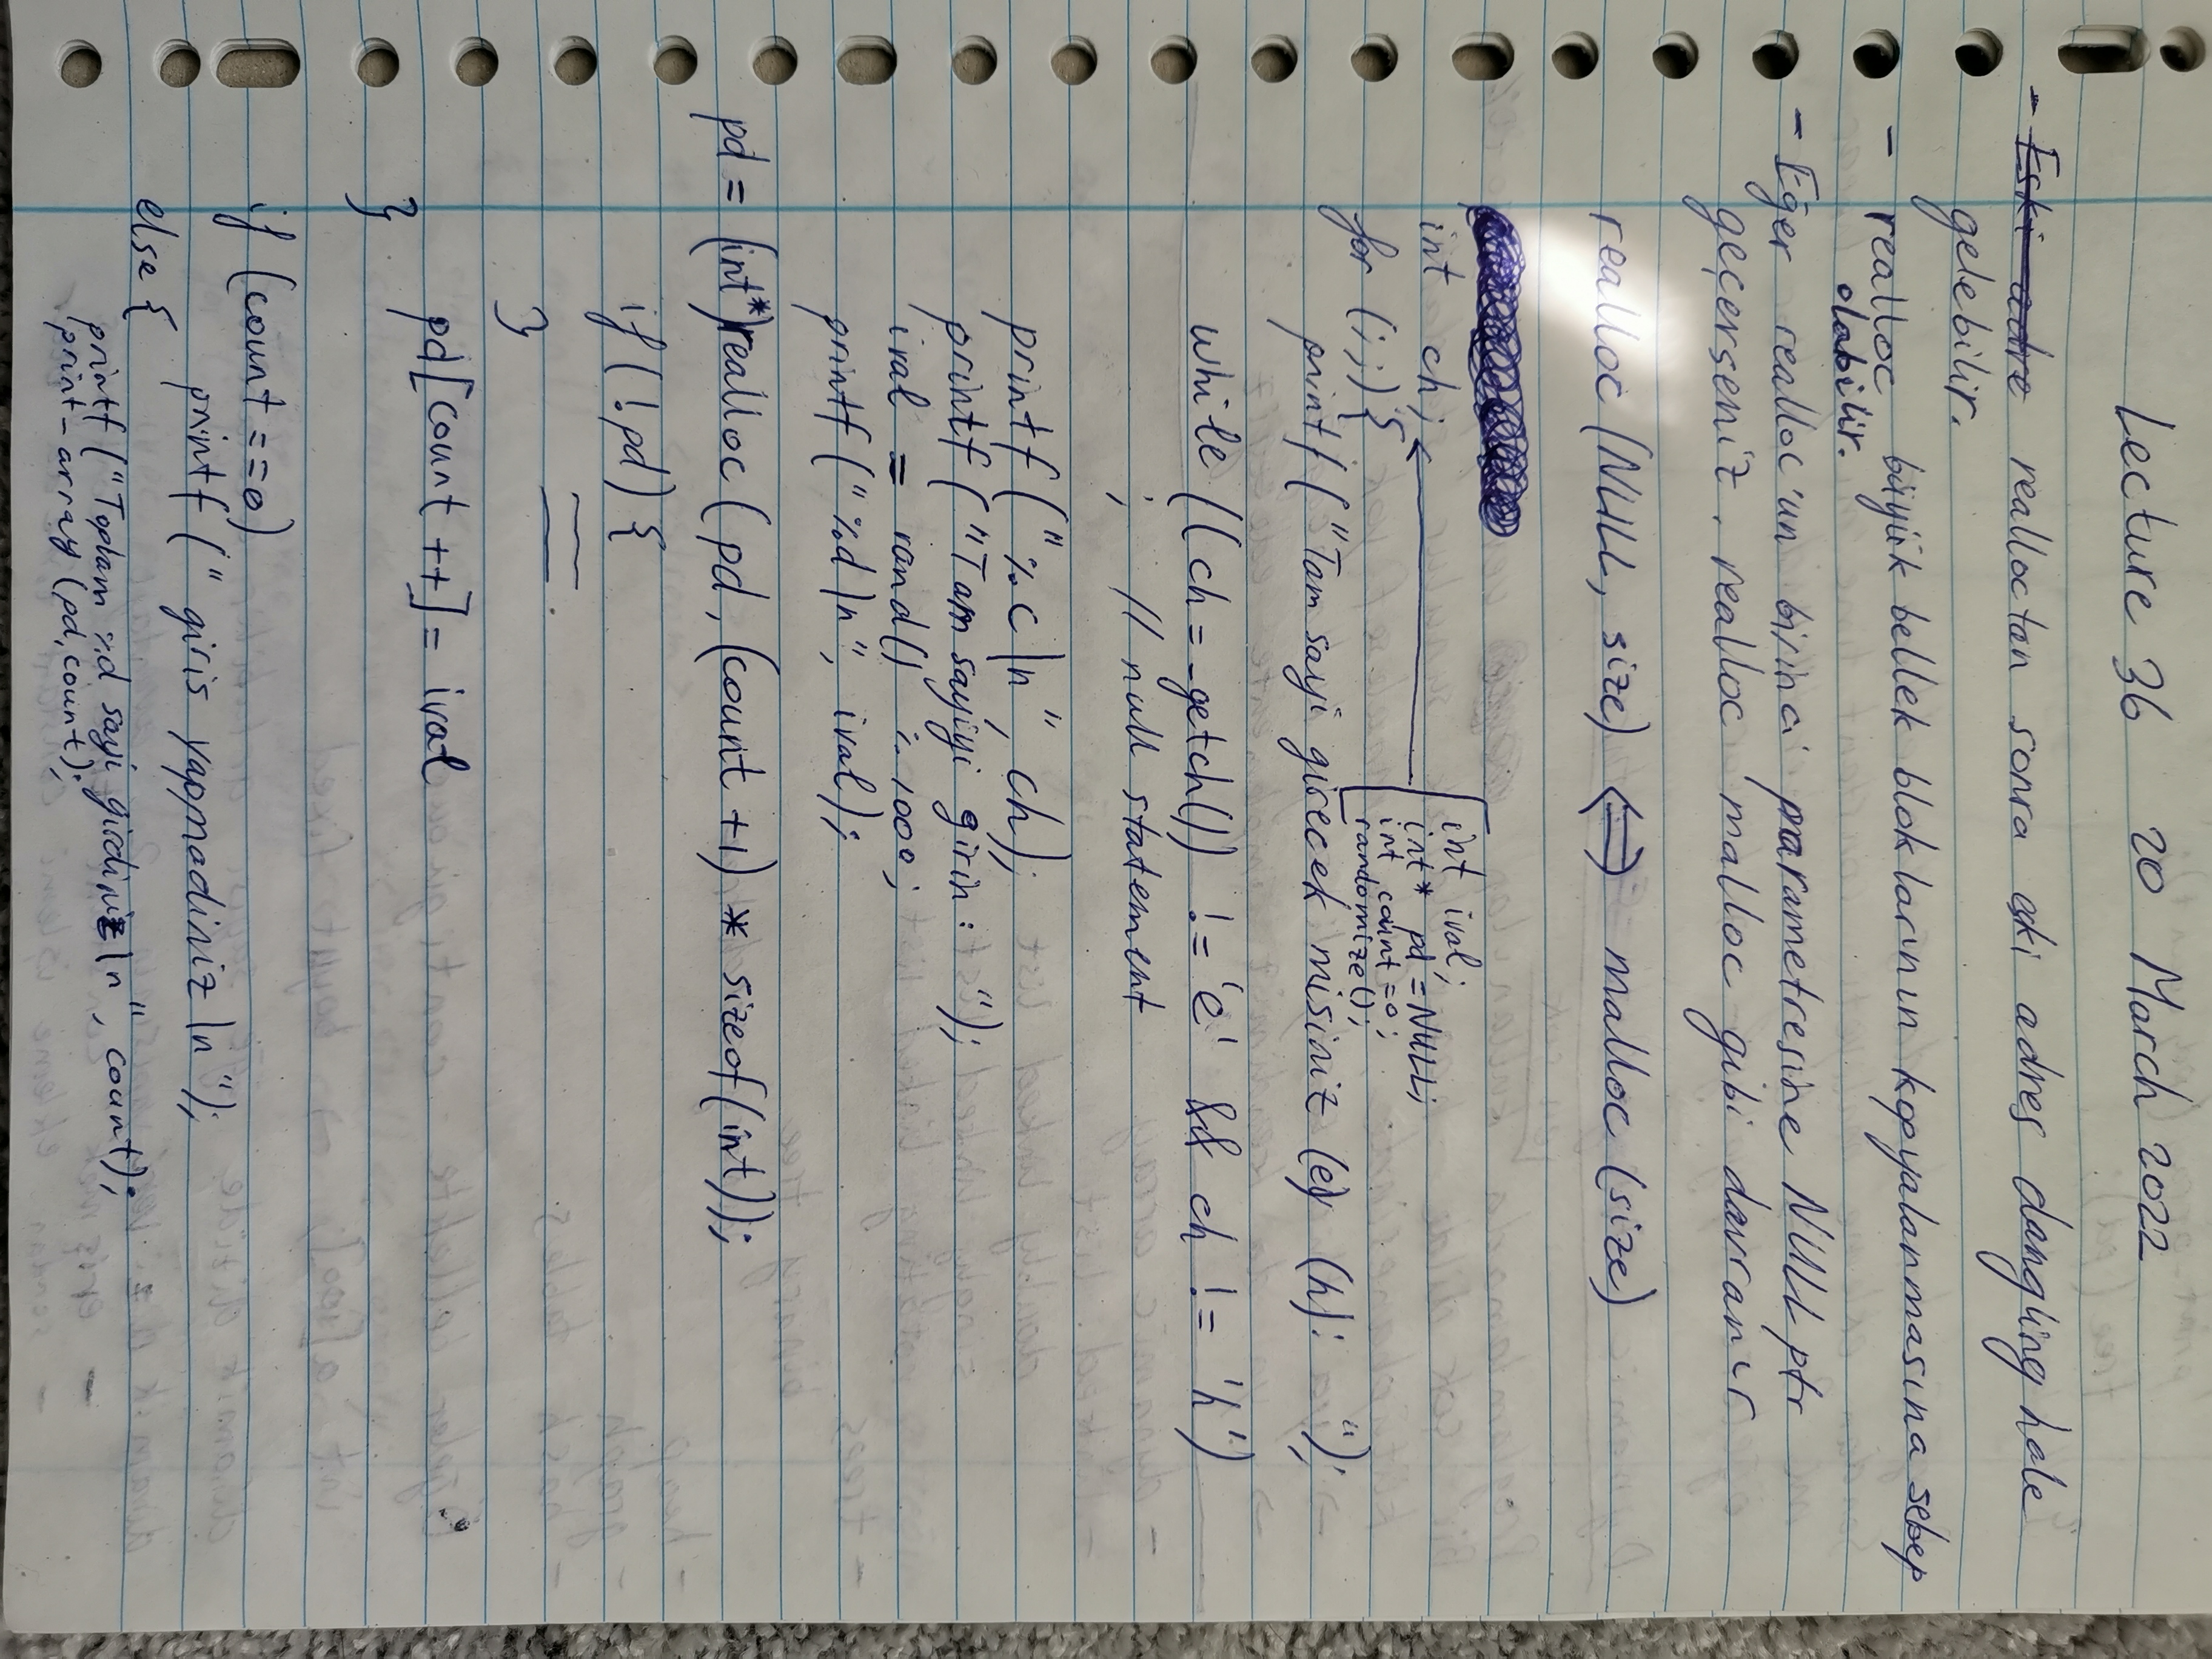 Lecture 36 20 March 2022
- Eski adre realloctan sonra eski adres dangling hale
gelebilir.
- realloc büyük bellek bloklarının kopyalanmasına sebep
olabilir.
- Eğer realloc'un birinci parametresine NULL ptr
geçerseniz. realloc malloc gibi davranır
realloc (NULL, size) ⟺ malloc (size)
int ch;
int ival;
int* pd = NULL;
int count = 0;
randomize();
for (;;) {
printf ("Tam sayi girecek misiniz (e) (h): ");
while ((ch = _getch()) != 'e' && ch != 'h')
; // null statement
printf ("%c\n", ch);
printf ("Tam sayiyi girin: ");
ival = rand() % 1000;
printf ("%d\n", ival);
pd = (int*)realloc (pd, (count +1) * sizeof(int));
if (!pd) {
}
pd[count ++] = ival
}
if (count ==0)
printf (" giris yapmadiniz \n");
else {
printf ("Toplam %d sayi girdiniz\n", count);
print_array (pd, count);